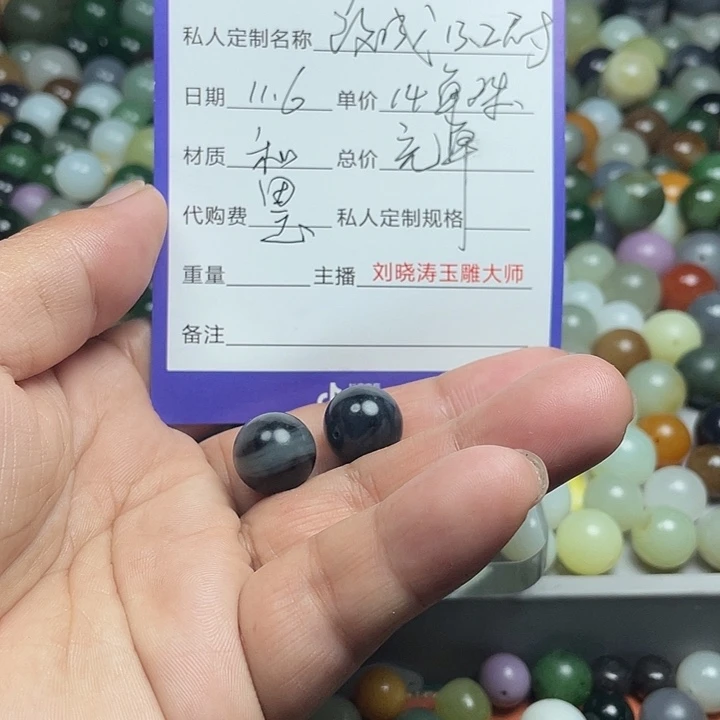 私人定制名称
日期 11.6 单价 14单珠
材质 和田玉 总价 元单
代购费 私人定制规格
重量 主播 刘晓涛玉雕大师
备注